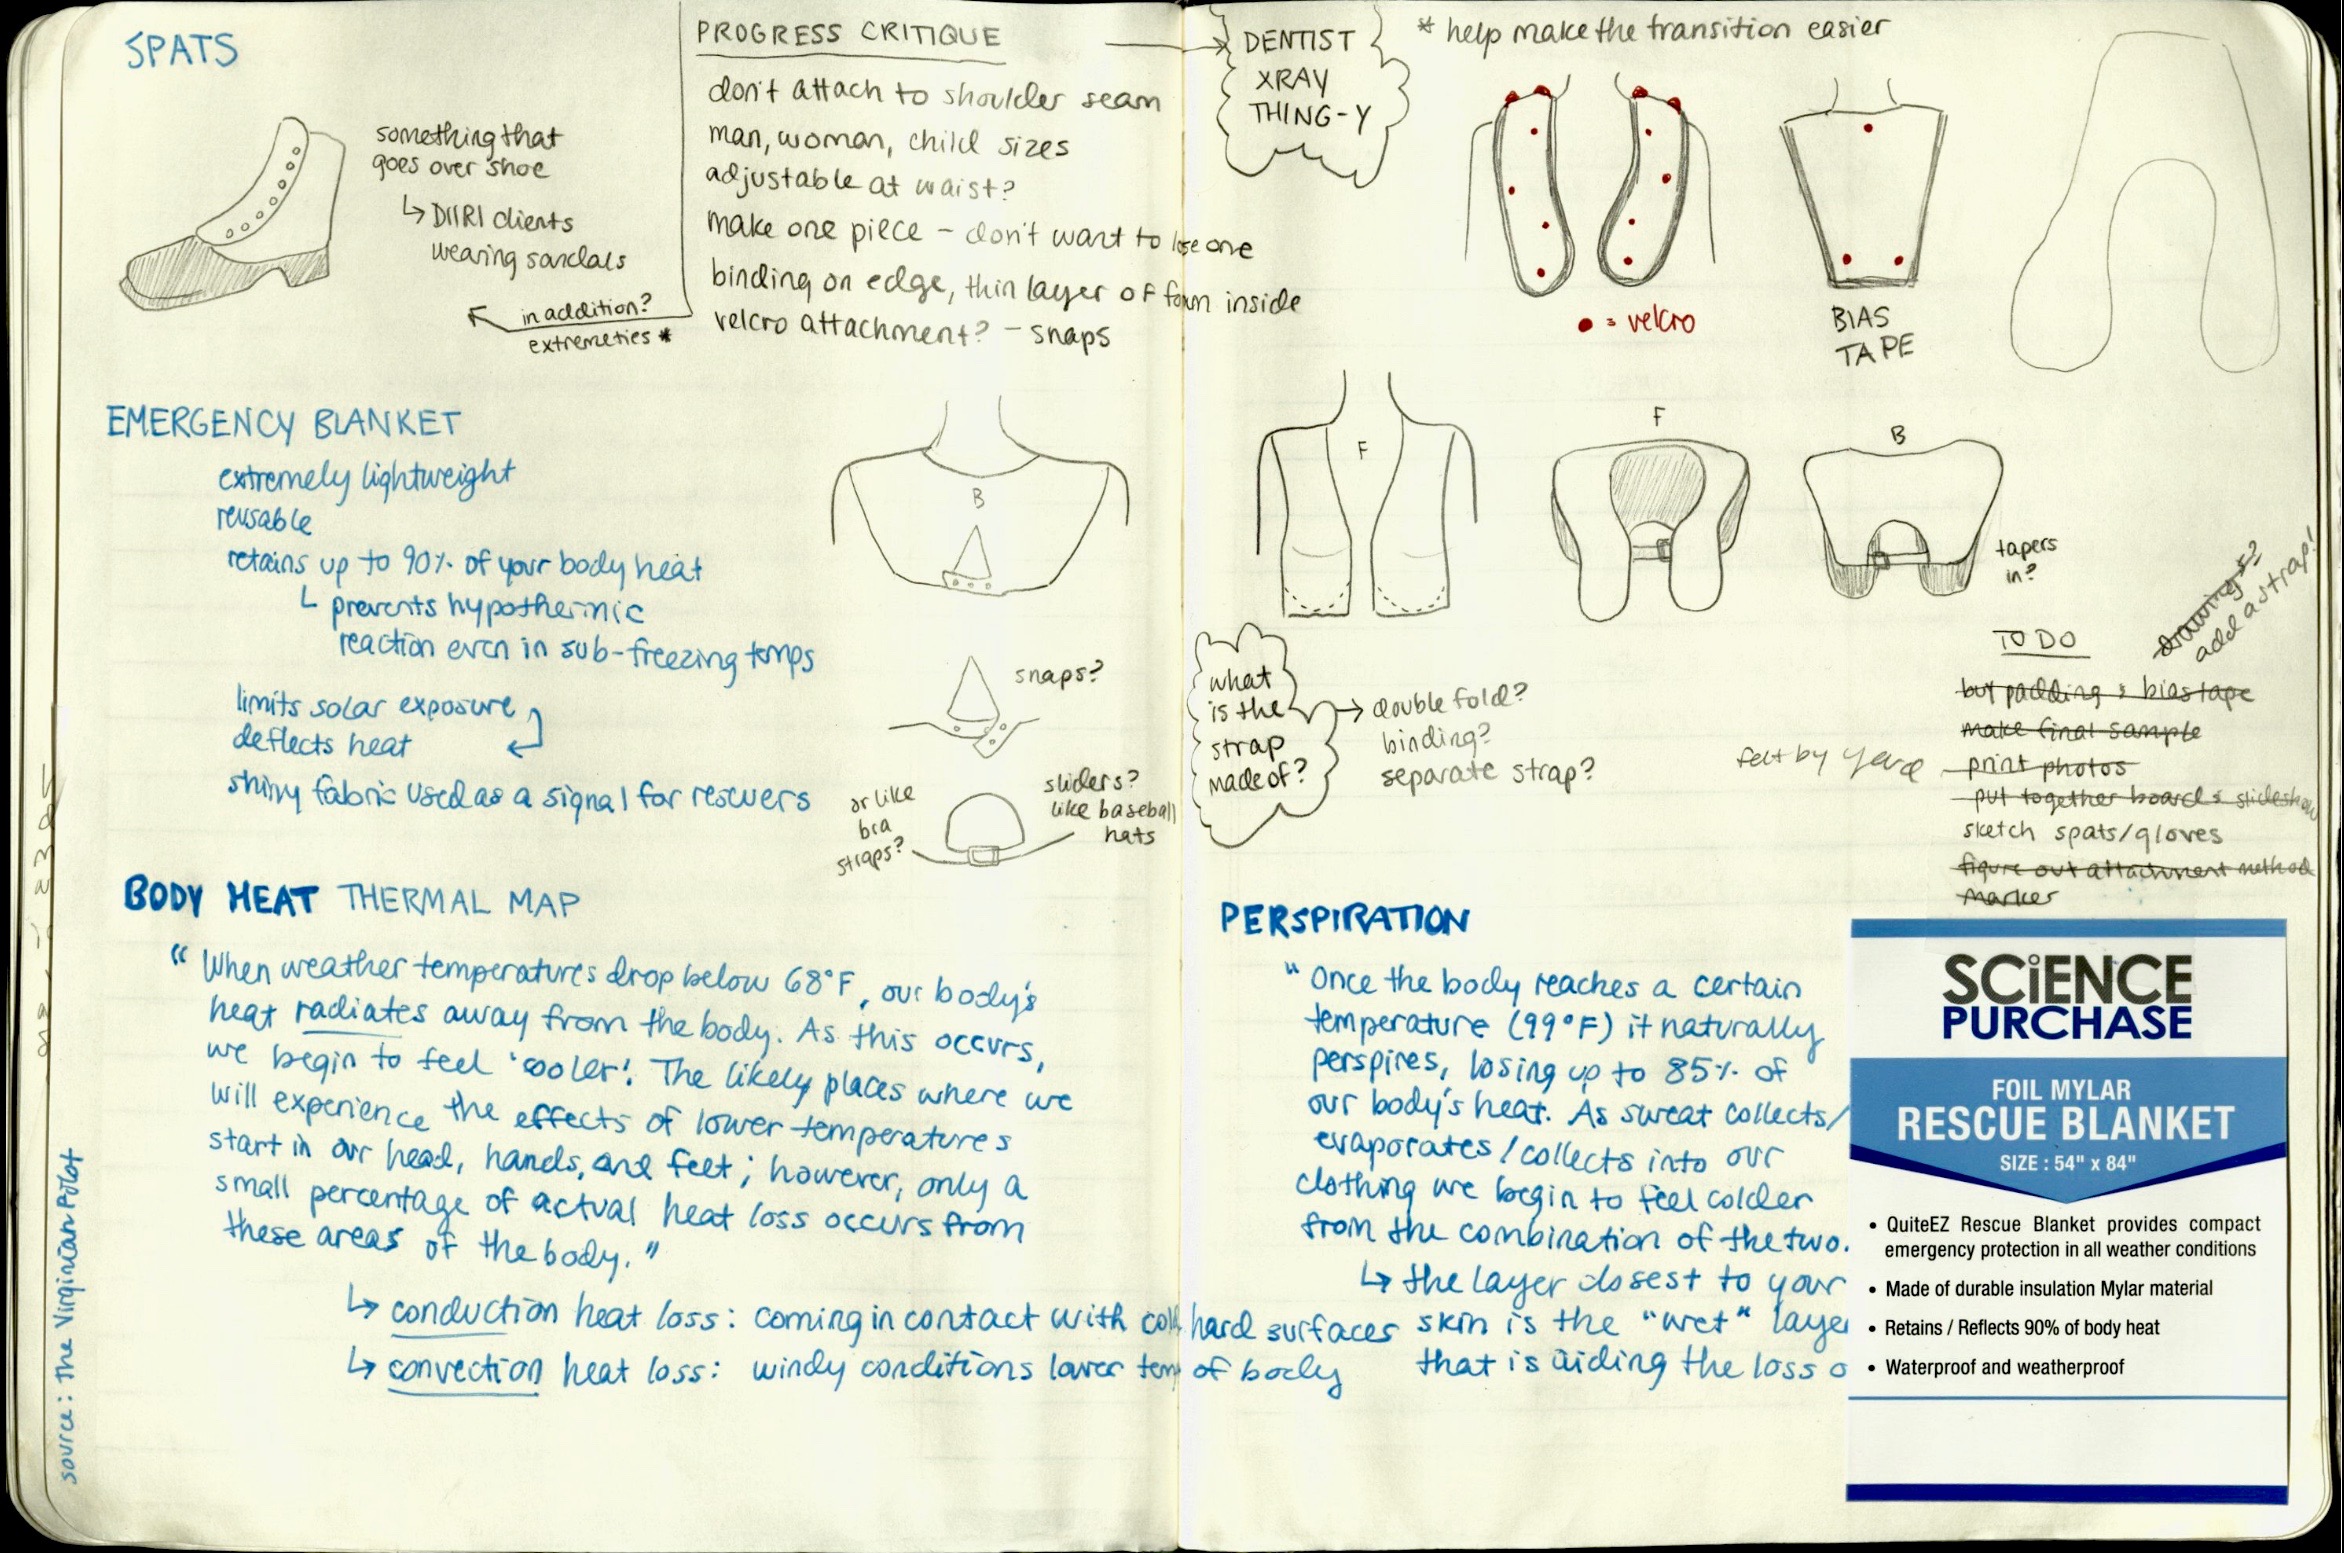 SPATS
something that
goes over shoe
↳ DIIRI clients
wearing sandals
in addition?
extremeties *
PROGRESS CRITIQUE
don't attach to shoulder seam
man, woman, child sizes
adjustable at waist?
make one piece - don't want to lose one
binding on edge, thin layer of foam inside
velcro attachment? - snaps
EMERGENCY BLANKET
extremely lightweight
reusable
retains up to 90% of your body heat
↳ prevents hypothermic
reaction even in sub-freezing temps
limits solar exposure
deflects heat
shiny fabric used as a signal for rescuers
B
snaps?
sliders?
like baseball
hats
or like
bra
straps?
BODY HEAT THERMAL MAP
"When weather temperatures drop below 68°F, our body's
heat radiates away from the body. As this occurs,
we begin to feel 'cooler'. The likely places where we
will experience the effects of lower temperatures
start in our head, hands, and feet; however, only a
small percentage of actual heat loss occurs from
these areas of the body."
↳ conduction heat loss: coming in contact with cold hard surfaces
↳ convection heat loss: windy conditions lower temp of body
source: The Virginian Pilot
DENTIST
XRAY
THING-Y
* help make the transition easier
• = velcro
BIAS
TAPE
F
F
B
tapers
in?
what
is the
strap
made of?
→ double fold?
binding?
separate strap?
drawings?
add a strap!
TO DO
buy padding & bias tape
make final sample
print photos
put together board & slideshow
sketch spats/gloves
figure out attachment method
marker
felt by yard
PERSPIRATION
"Once the body reaches a certain
temperature (99°F) it naturally
perspires, losing up to 85% of
our body's heat. As sweat collects/
evaporates/collects into our
clothing we begin to feel colder
from the combination of the two.
↳ the layer closest to your
skin is the "wet" laye
that is aiding the loss o
SCiENCE
PURCHASE
FOIL MYLAR
RESCUE BLANKET
SIZE : 54" x 84"
• QuiteEZ Rescue Blanket provides compact
emergency protection in all weather conditions
• Made of durable insulation Mylar material
• Retains / Reflects 90% of body heat
• Waterproof and weatherproof